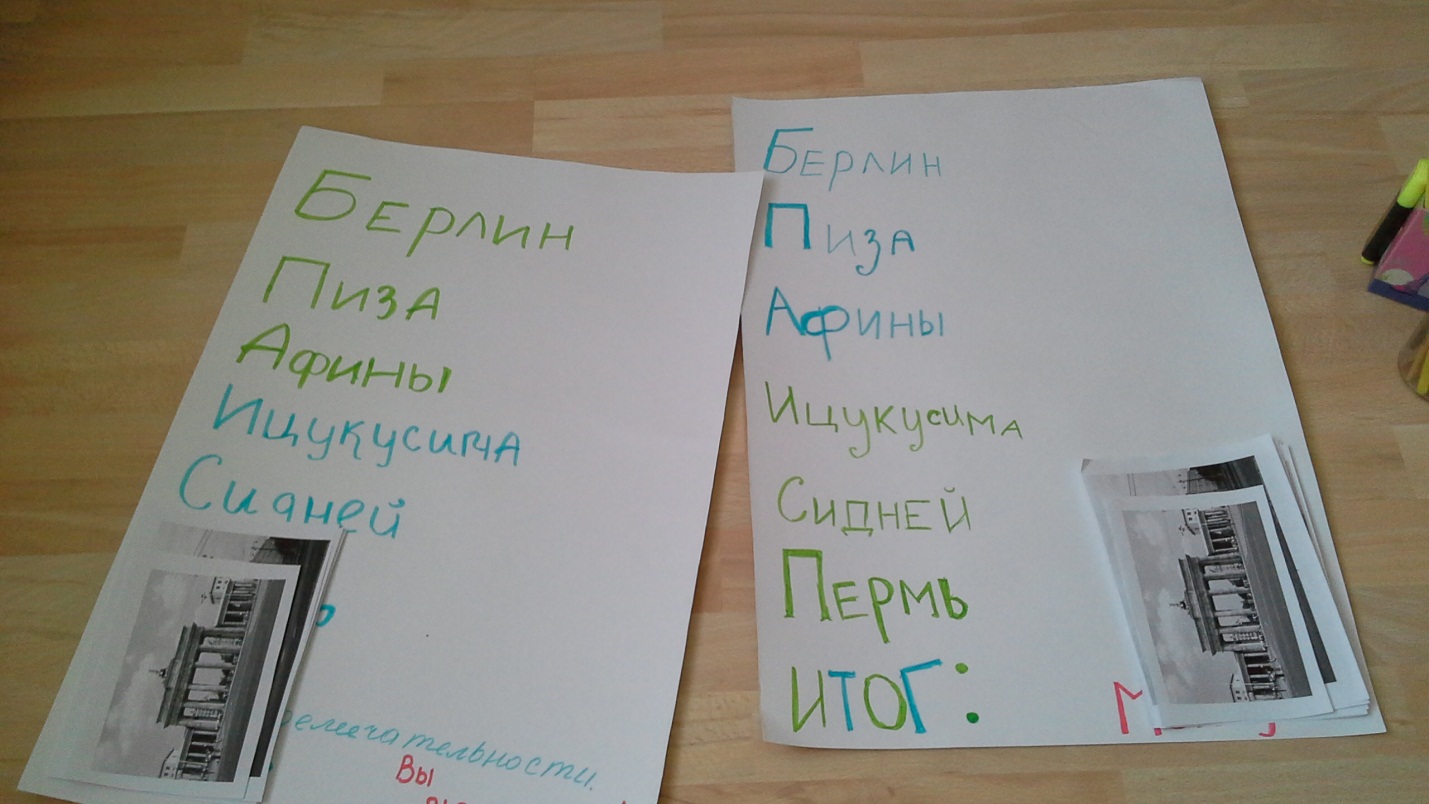 Берлин
Пиза
Афины
Ицукусима
Сидней
Вы
Берлин
Пиза
Афины
Ицукусима
Сидней
Пермь
итог: